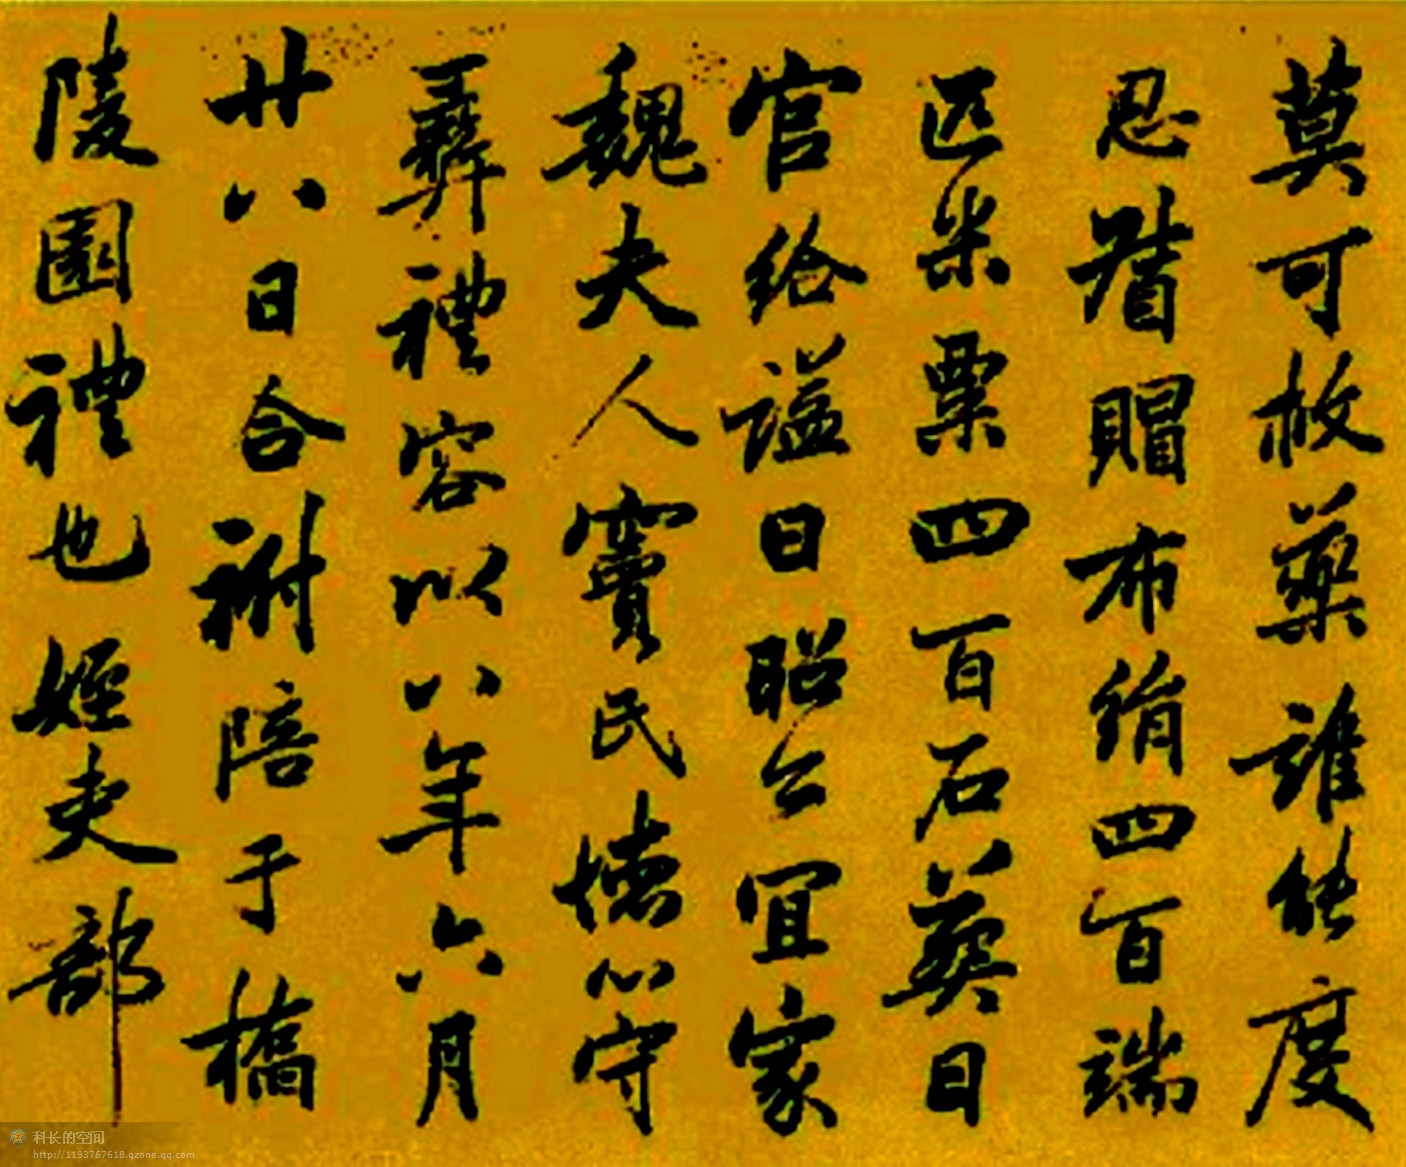 莫可救藥誰能度
思賵賵布絹四百端
匹米粟四百石葬日
官給謚日昭公宜家
魏夫人竇氏德心守
彞禮容以八年六月
廿八日合祔陪于橋
陵園禮也姪吏部
科长的空间
http://1193767618.qzone.qq.com